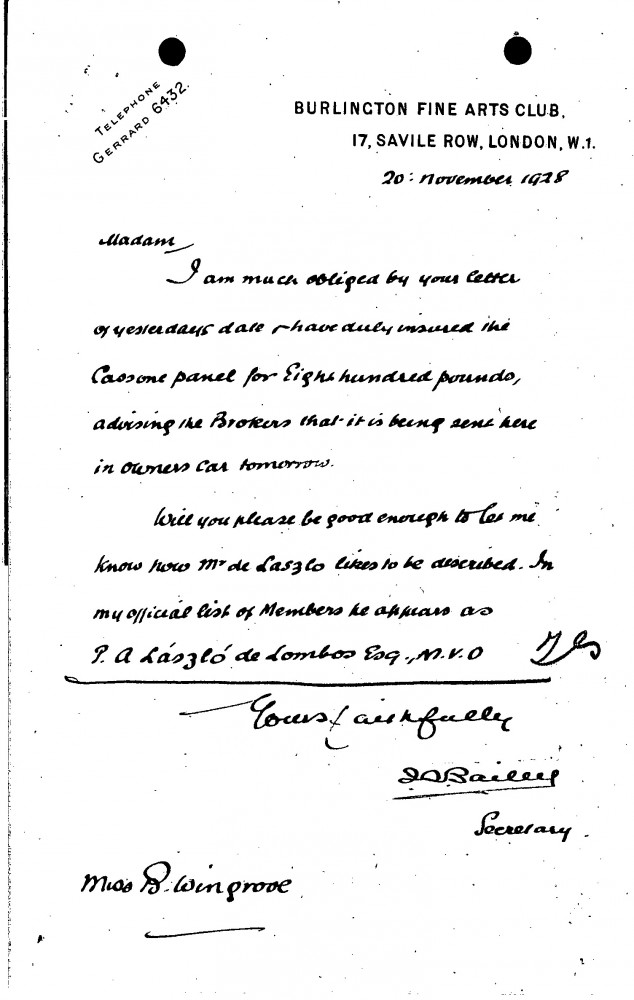 TELEPHONE
GERRARD 6432.
BURLINGTON FINE ARTS CLUB,
17, SAVILE ROW, LONDON, W.1.
20: November 1928
Madam
I am much obliged by your letter
of yesterdays date & have duly insured the
Cassone panel for Eight hundred pounds,
advising the Brokers that it is being sent here
in owners car tomorrow.
Will you please be good enough to let me
know how Mr de Laszlo likes to be described. In
my official list of Members he appears as
P. A László de Lombos Esq., M.V.O
Yours faithfully
Bailey
Secretary.
Miss B. Wingrove